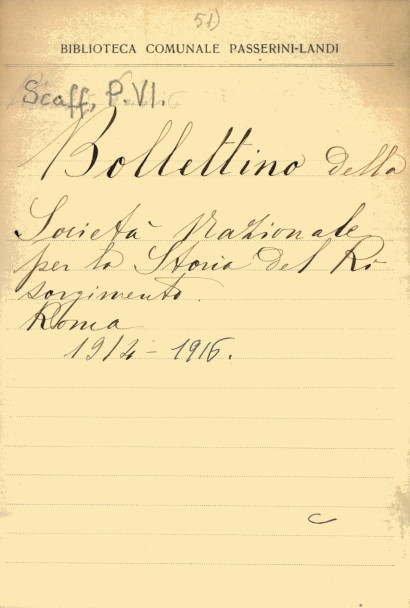 51)
BIBLIOTECA COMUNALE PASSERINI-LANDI
Scaff. P. VI.
Bollettino della
Società Nazionale
per la Storia del Ri
sorgimento.
Roma
1912 - 1916.
C